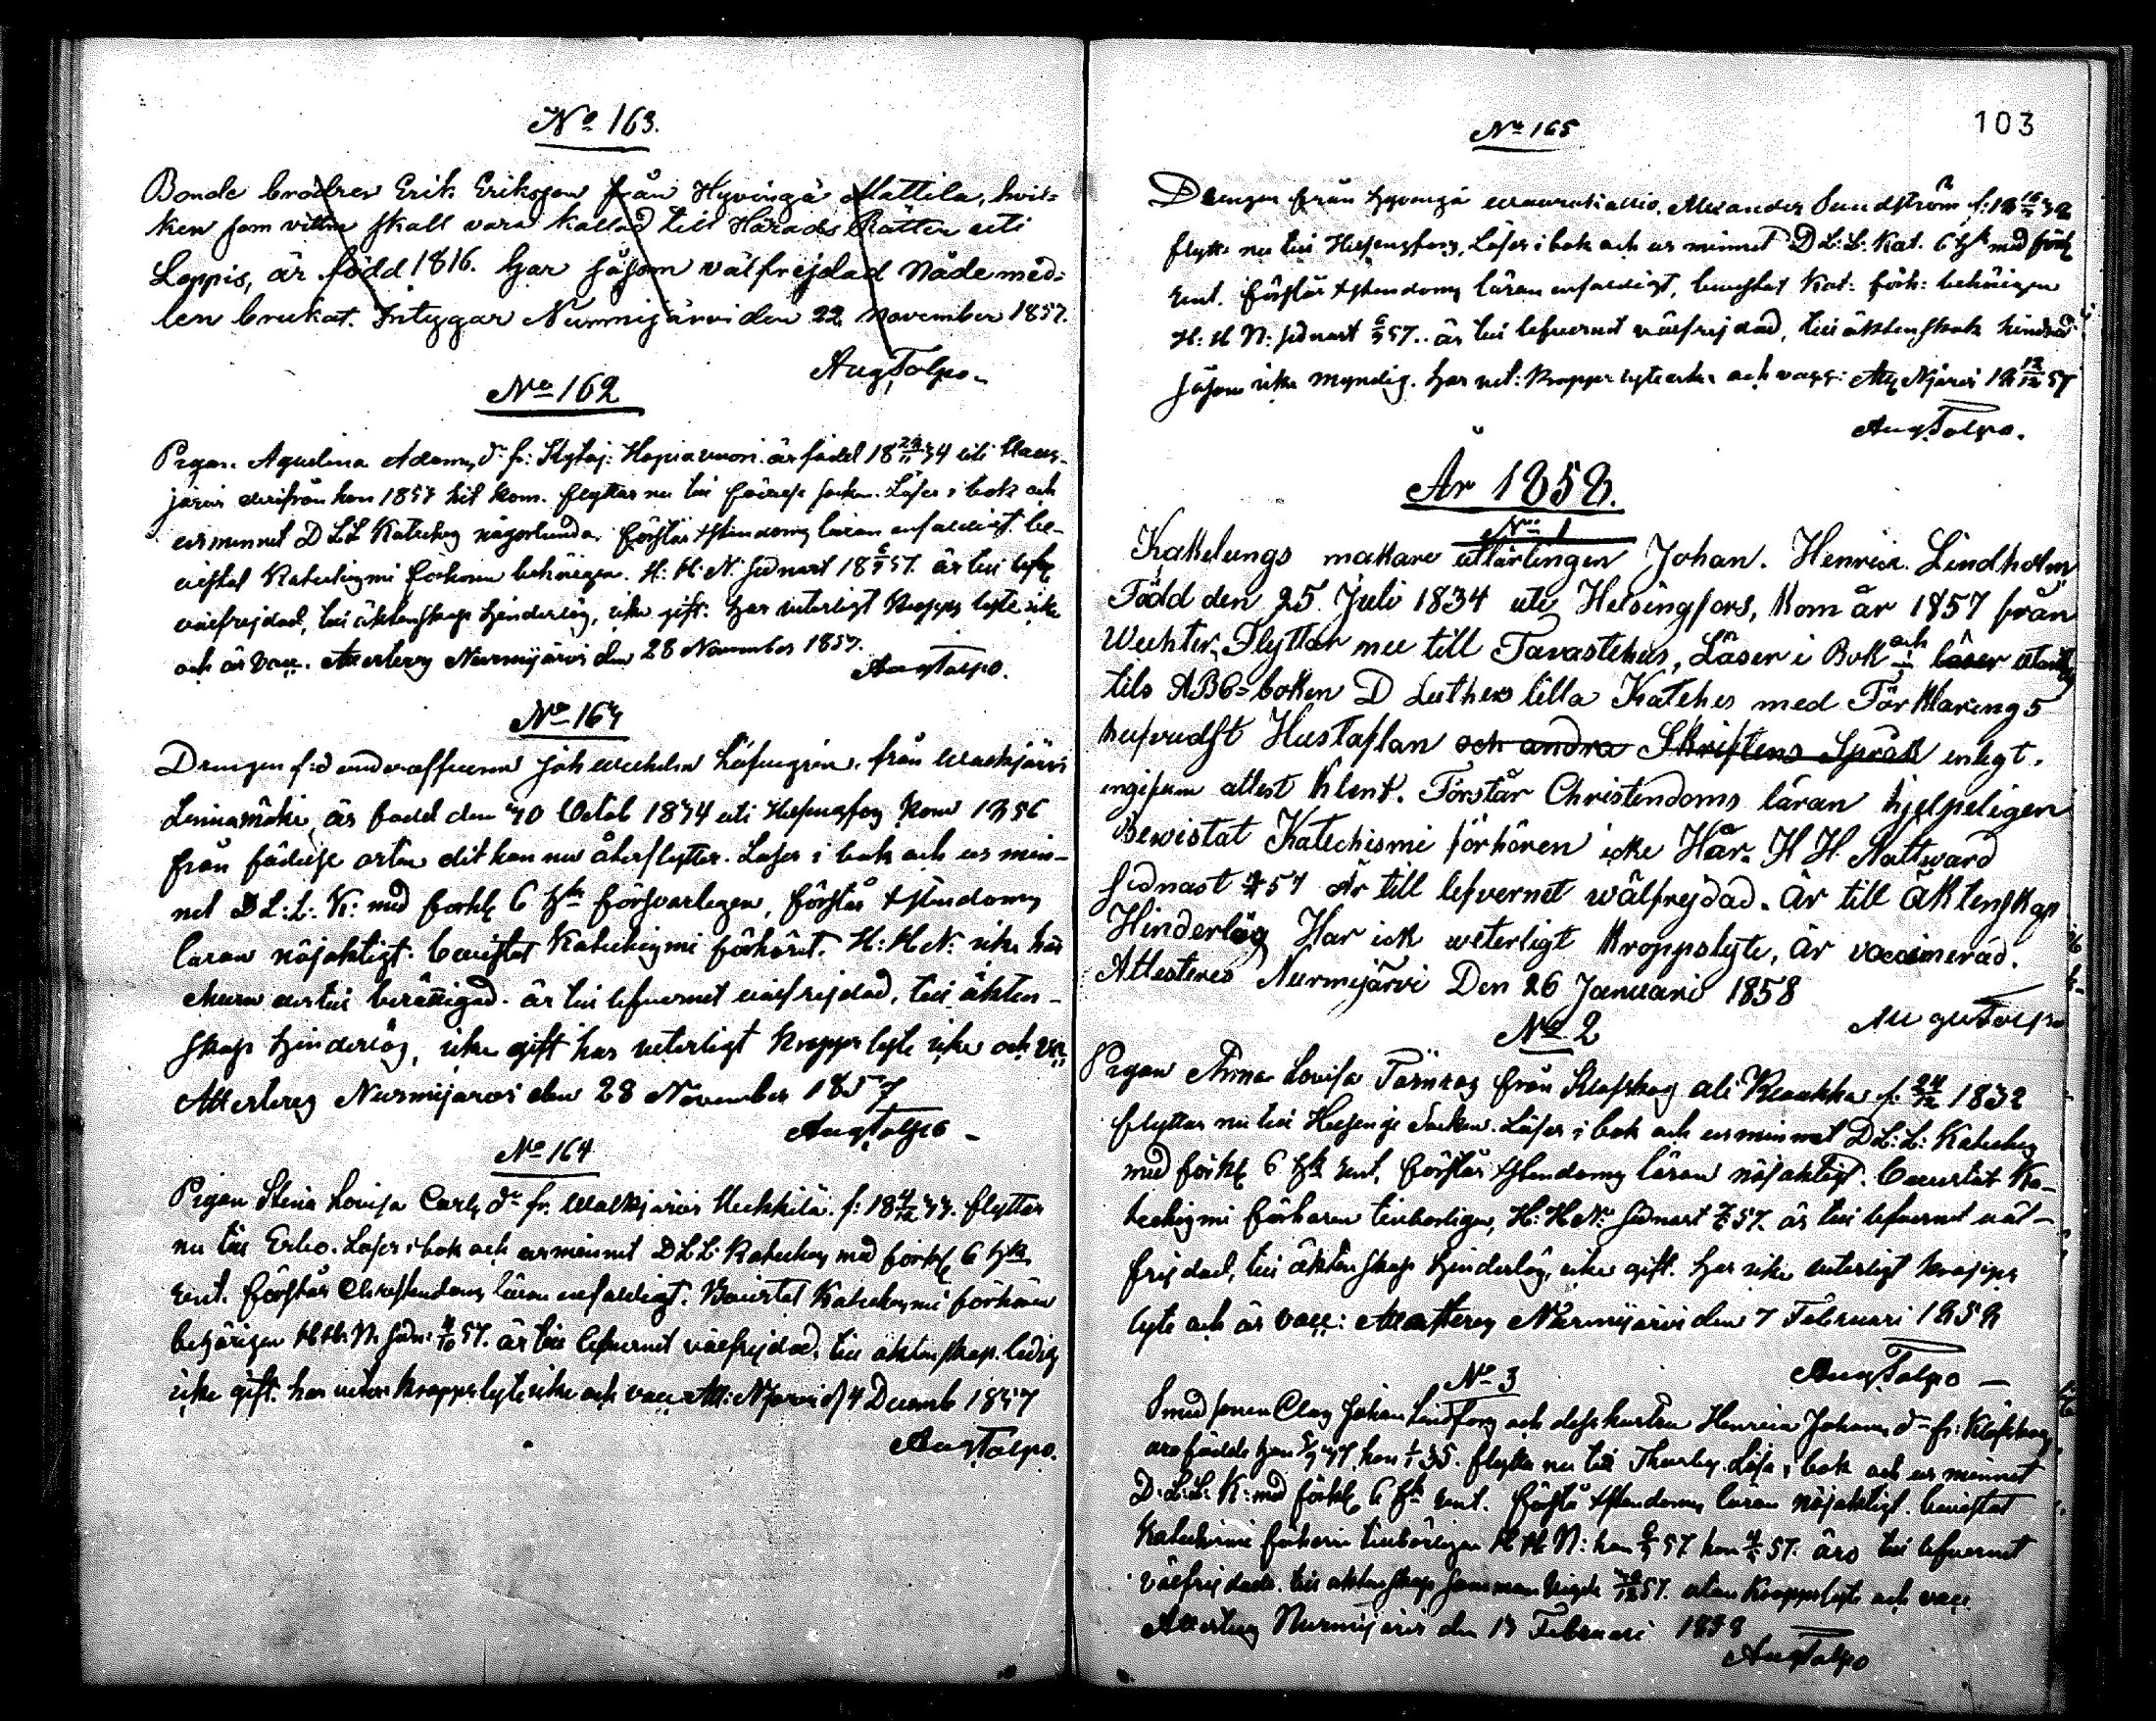 No 163.
Bonde brodren Erik Eriksson från Hyvingä Mattila, hvil=
ken som vittne skall vara kallad till Härads Rätten uti
Loppis, är född 1816. har såsom välfrejdad Nådemed=
len brukat. Intygar Nurmijärvi den 22 November 1857.
Aug Talpo.
No 162
Pigan Agustina Adams dr fr: Kytäj: Hapiavuori är född 18 34 uti
järvi derifrån hon 1857 hit kom. flyttar nu till socken. Läser i bok och
ur minnet D L L Kateches någorlunda, förstår Xstendoms läran enfaldigt. be-
vistat Katechismi förhören behörigen. H: H: N: sednast 18 57. är till lefv
välfrejdad, till äktenskap hinderlös, icke gift. har veterligt kropps lyte icke
och är vacc. Attesteras Nurmijärvi den 28 November 1857.
Aug Talpo.
No 164
Drengen f:d underofficeren Joh Löfengren från
Linnamäki, är född den Octob 1834 uti Helsingfors kom 1856
från födelse orten dit han nu återflyttar. Läser i bok och ur min-
net D L: L: K: med förkl 6 hfst försvarligen, förstår Xstendoms
läran nöjaktigt. bevistat Katechismi förhöret. H: H N: icke här
är till lefvernet välfrejdad, till äkten-
skap hinderlös, icke gift har veterligt kropps lyte icke och vac
Attesteras Nurmijärvi den 28 November 1857
Aug Talpo
No 164
Pigan Stina Lovisa Carls dr fr. Heikkilä. f: 18 flyttar
nu till Esbo. Läser i bok och ur minnet D L L: Kateches med förkl 6 hfst
rent. förstår Christendoms läran enfaldigt. Bevistat Katechismi förhören
behörigen H: H: N: sedn: 57. är till lefvernet välfrejdad, till äktenskap ledig
icke gift. har veter kroppslyte icke och vacc Att: N:järvi d 4 Decemb 1857
Aug Talpo.
103
No 165
Drengen från Hyvingä Alexander Sundström f: 18
flytta nu till Helsingfors. Läser i bok och ur minnet D L: L: Kat. 6 hfst med förkl
rent. förstår Xstendoms läran enfaldigt, bevistat Kat: förh: behörigen
H: H N: sednast 57. är till lefvernet välfrejdad, till äktenskap hindrad
såsom icke myndig. har vet: kropps lyte icke och vacc: Att Njärvi 18 57
Aug Talpo.
År 1858.
No 1
Kakelungs makare utlärlingen Johan. Henric. Lindholm
Född den 25. Juli 1834 uti Helsingfors, Kom år 1857 från
Flyttar nu till Tavastehus, Läser i Bok och läser
tils ABC=boken D Luthers lilla Kateches med Förklaring 5
hufvudst Hustaflan och andra Skriftens Språk enligt.
attest Klent. Förstår Christendoms läran hjelpeligen
Bevistat Katechismi förhören icke Här. H H. Nattward
sednast 57 Är till lefvernet wälfrejdad. Är till äktenskap
Hinderlös Har ick weterligt Kroppslyte, är vaccinerad.
Attesteres Nurmijärvi Den 26 Januari 1858
Aug Talpo
No 2
Pigan Anna Lovisa Törnros från Klafskog ali Klaukka f: 24/12 1832
flyttar nu till Helsinge Socken. Läser i bok och ur minnet D L: L: Kateches
med förkl 6 hfst rent, förstår Xstendoms läran nöjaktigt. bevistat Ka-
techismi förhören tillbörligen, H: H N: sednast 57. är till lefvernet väl-
frejdad, till äktenskap hinderlös, icke gift. har icke veterligt kropps
lyte och är vacc: Attesteras Nurmijärvi den 7 Februari 1858
Aug Talpo
No 3
Smed sonen Clas Johan Lindfors och dess hustru Henrica Johans dr fr: Klafskog
äro födde han hon 35. flytta nu till Thusby. Läsa i bok och ur minnet
D. L: L: K: med förkl 6 hfst rent. förstå Xstendoms läran nöjaktigt. bevistat
Katechismi förhören tillbörligen H H N: han 57. hon 57. äro till lefvernet
välfrejdade. till äktenskap sammanvigde 57. utan kroppslyte och vacc
Attesteras Nurmijärvi den 13 Februari 1858
Aug Talpo